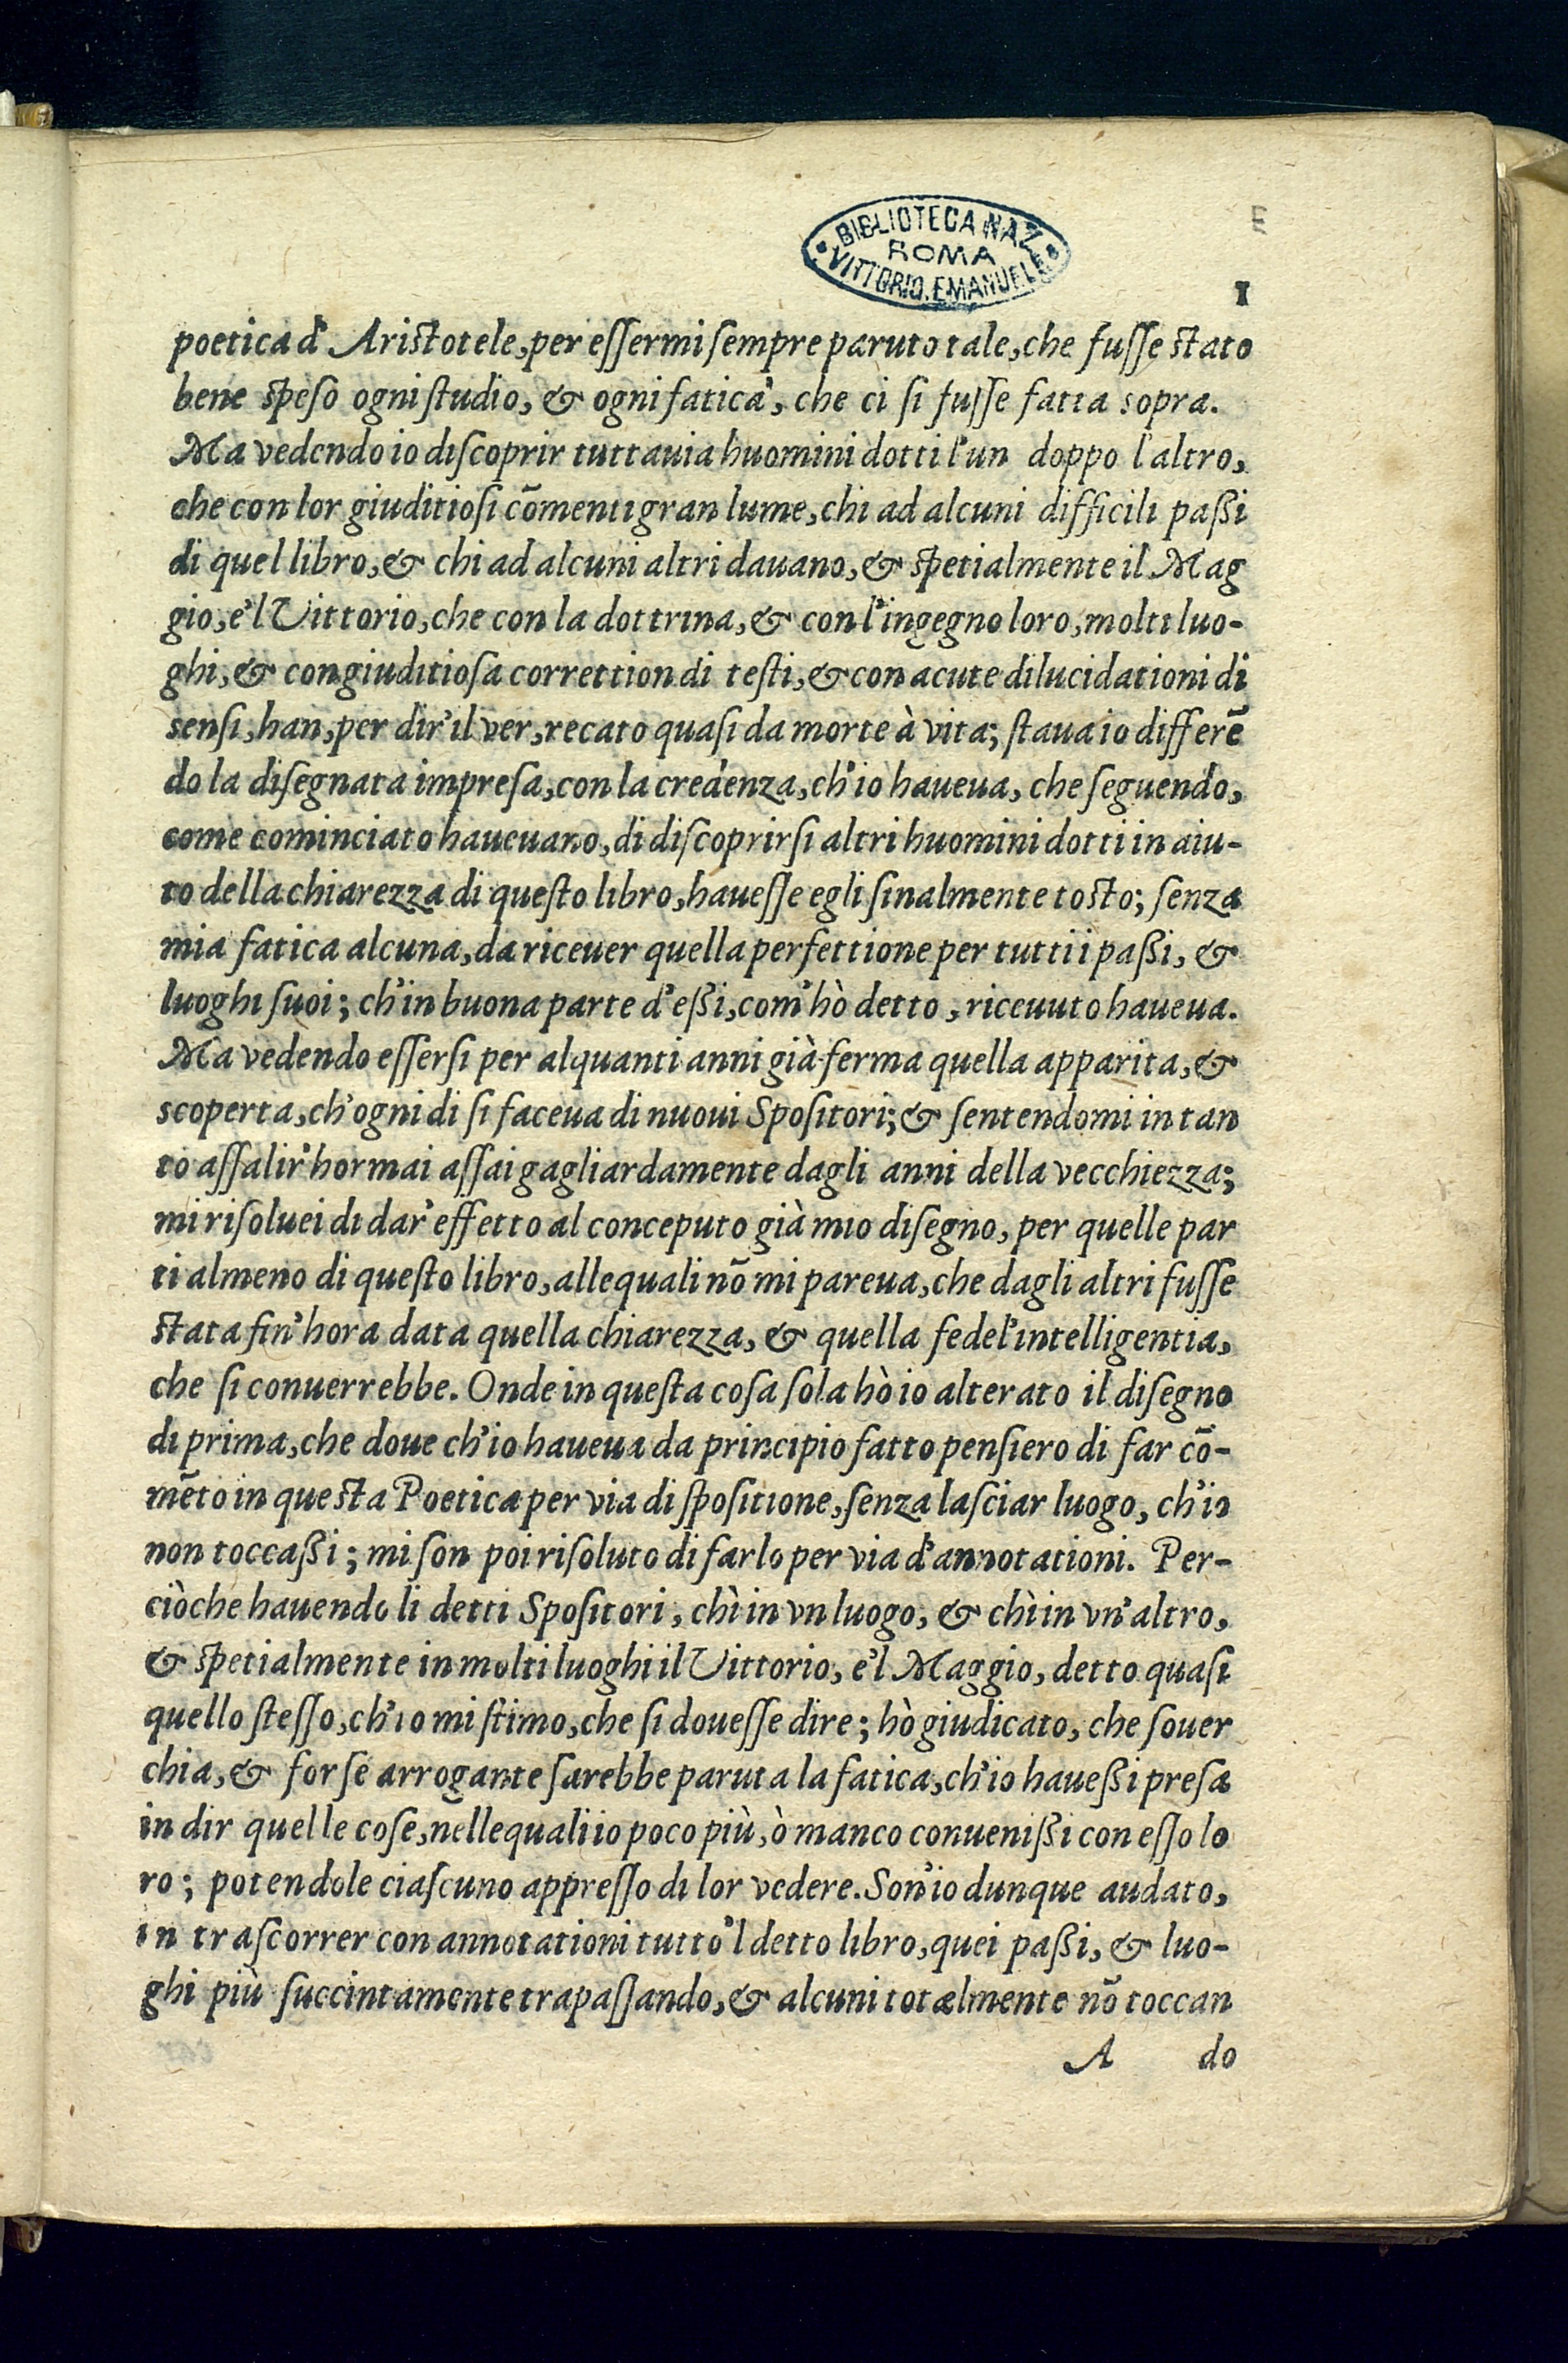 BIBLIOTECA NAZ
ROMA
VITTORIO.EMANUELE
1
poetica d'Aristotele, per eſſermi ſempre paruto tale, che fuſſe ſtato
bene ſpeſo ogni ſtudio, & ogni fatica, che ci ſi fuſſe fatta sopra.
Ma vedendo io diſcoprir tuttauia huomini dotti l'un doppo l'altro,
che con lor giuditioſi cōmenti gran lume, chi ad alcuni difficili paßi
di quel libro, & chi ad alcuni altri dauano, & ſpetialmente il Mag
gio, e'l Vittorio, che con la dottrina, & con l'ingegno loro, molti luo-
ghi, & con giuditioſa correttion di teſti, & con acute dilucidationi di
senſi, han, per dir' il ver, recato quaſi da morte à vita; ſtaua io differē
do la diſegnata impreſa, con la credenza, ch'io haueua, che ſeguendo,
come cominciato haueuano, di diſcoprirſi altri huomini dotti in aiu-
to della chiarezza di queſto libro, haueſſe egli ſinalmente toſto; ſenza
mia fatica alcuna, da riceuer quella perfettione per tutti i paßi, &
luoghi ſuoi; ch'in buona parte d'eßi, com'hò detto, riceuuto haueua.
Ma vedendo eſſerſi per alquanti anni già ferma quella apparita, &
scoperta, ch'ogni di ſi faceua di nuoui Spoſitori; & ſentendomi in tan
to aſſalir' hormai aſſai gagliardamente dagli anni della vecchiezza;
mi riſoluei di dar' effetto al conceputo già mio diſegno, per quelle par
ti almeno di queſto libro, alle quali nō mi pareua, che dagli altri fuſſe
ſtata fin' hora data quella chiarezza, & quella fedel' intelligentia,
che ſi conuerrebbe. Onde in queſta coſa ſola hò io alterato il diſegno
di prima, che doue ch'io haueua da principio fatto penſiero di far cō-
mēto in queſta Poetica per via di ſpoſitione, ſenza laſciar luogo, ch'io
non toccaßi; mi ſon poi riſoluto di farlo per via d'annotationi. Per-
ciòche hauendo li detti Spoſitori, chì in vn luogo, & chì in vn' altro,
& ſpetialmente in molti luoghi il Vittorio, e'l Maggio, detto quaſi
quello ſteſſo, ch'io mi ſtimo, che ſi doueſſe dire; hò giudicato, che ſouer
chia, & forſe arrogante ſarebbe paruta la fatica, ch'io haueßi preſa
in dir quelle coſe, nelle quali io poco più, ò manco conuenißi con eſſo lo
ro; potendole ciaſcuno appreſſo di lor vedere. Son' io dunque audato,
in traſcorrer con annotationi tutto'l detto libro, quei paßi, & luo-
ghi più ſuccintamente trapaſſando, & alcuni totalmente nō toccan
A do